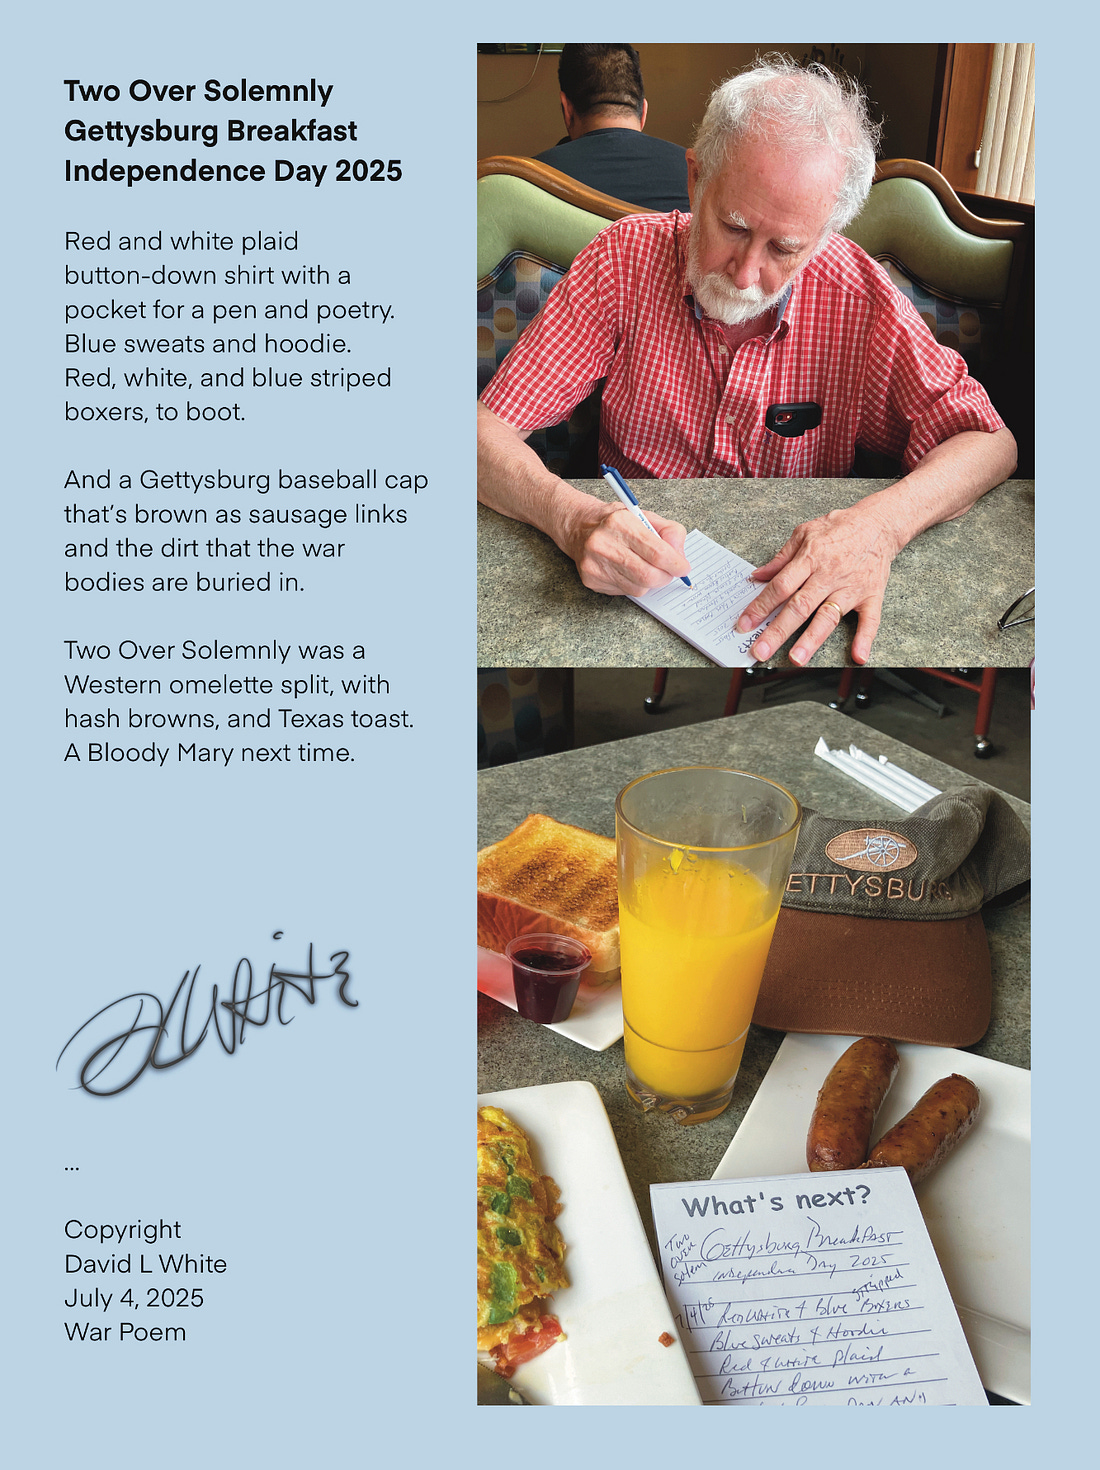 Two Over Solemnly
Gettysburg Breakfast
Independence Day 2025
Red and white plaid
button-down shirt with a
pocket for a pen and poetry.
Blue sweats and hoodie.
Red, white, and blue striped
boxers, to boot.
And a Gettysburg baseball cap
that's brown as sausage links
and the dirt that the war
bodies are buried in.
Two Over Solemnly was a
Western omelette split, with
hash browns, and Texas toast.
A Bloody Mary next time.
DLWhite
...
Copyright
David L White
July 4, 2025
War Poem
ETTYSBU
What's next?
Two
over
Solem
Gettysburg Breakfast
Independence Day 2025
7/4/25
stripped
Red White & Blue Boxers
Blue sweats & Hoodie
Red & white plaid
Button down with a